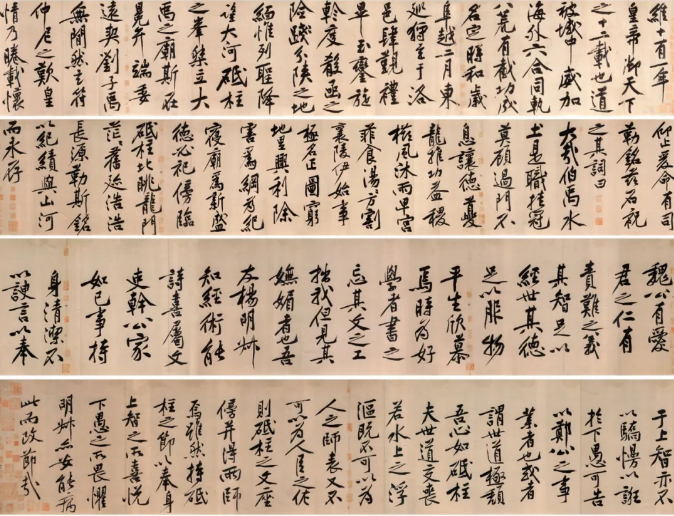 維十有一年
皇帝御天下
之十二載也道
被域中威加
海外六合同軌
八荒有截功成
名定時和歲
阜越二月東
巡狩至于洛
邑肆覲禮
畢玉鑾旋
軫度殽函之
險踐分陝之地
緬惟列聖降
望大河砥柱
之峯桀立大
禹之廟斯在
冕弁端委
遠契劉子禹
無間然之符
仲尼之歎皇
情乃睠載懷
仰止爰命有司
勒銘茲石祝
之其詞曰
大哉伯禹水
土是職挂冠
莫顧過門不
息讓德夔
龍推功益稷
櫛風沐雨卑宮
菲食湯湯方割
襄陵伊始事
極名正圖窮
地里興利除
害爲綱爲紀
寢廟爲新盛
德必祀傍臨
砥柱北眺龍門
茫茫舊跡浩浩
長源勒斯銘
以紀績與山河
而永存
魏公有愛
君之仁有
責難之義
其智足以
經世其德
足以服物
平生欣慕
焉時爲好
學者書之
忘其文之工
拙我但見其
嫵媚者也吾
友楊明叔
知經術能
詩喜屬文
吏幹公家
如己事持
身清潔不
以諛言以奉
于上智亦不
以驕慢以誑
於下愚可告
以鄭公之事
業者也或者
謂世道極頹
吾心如砥柱
夫世道交喪
若水上之浮
漚既不可以爲
人之師表又不
可以爲人臣之佐
則砥柱之文座
傍并得兩師
焉雖然持砥
柱之節以奉身
上智之所喜悅
下愚之所畏懼
明叔亦安能病
此而改節哉